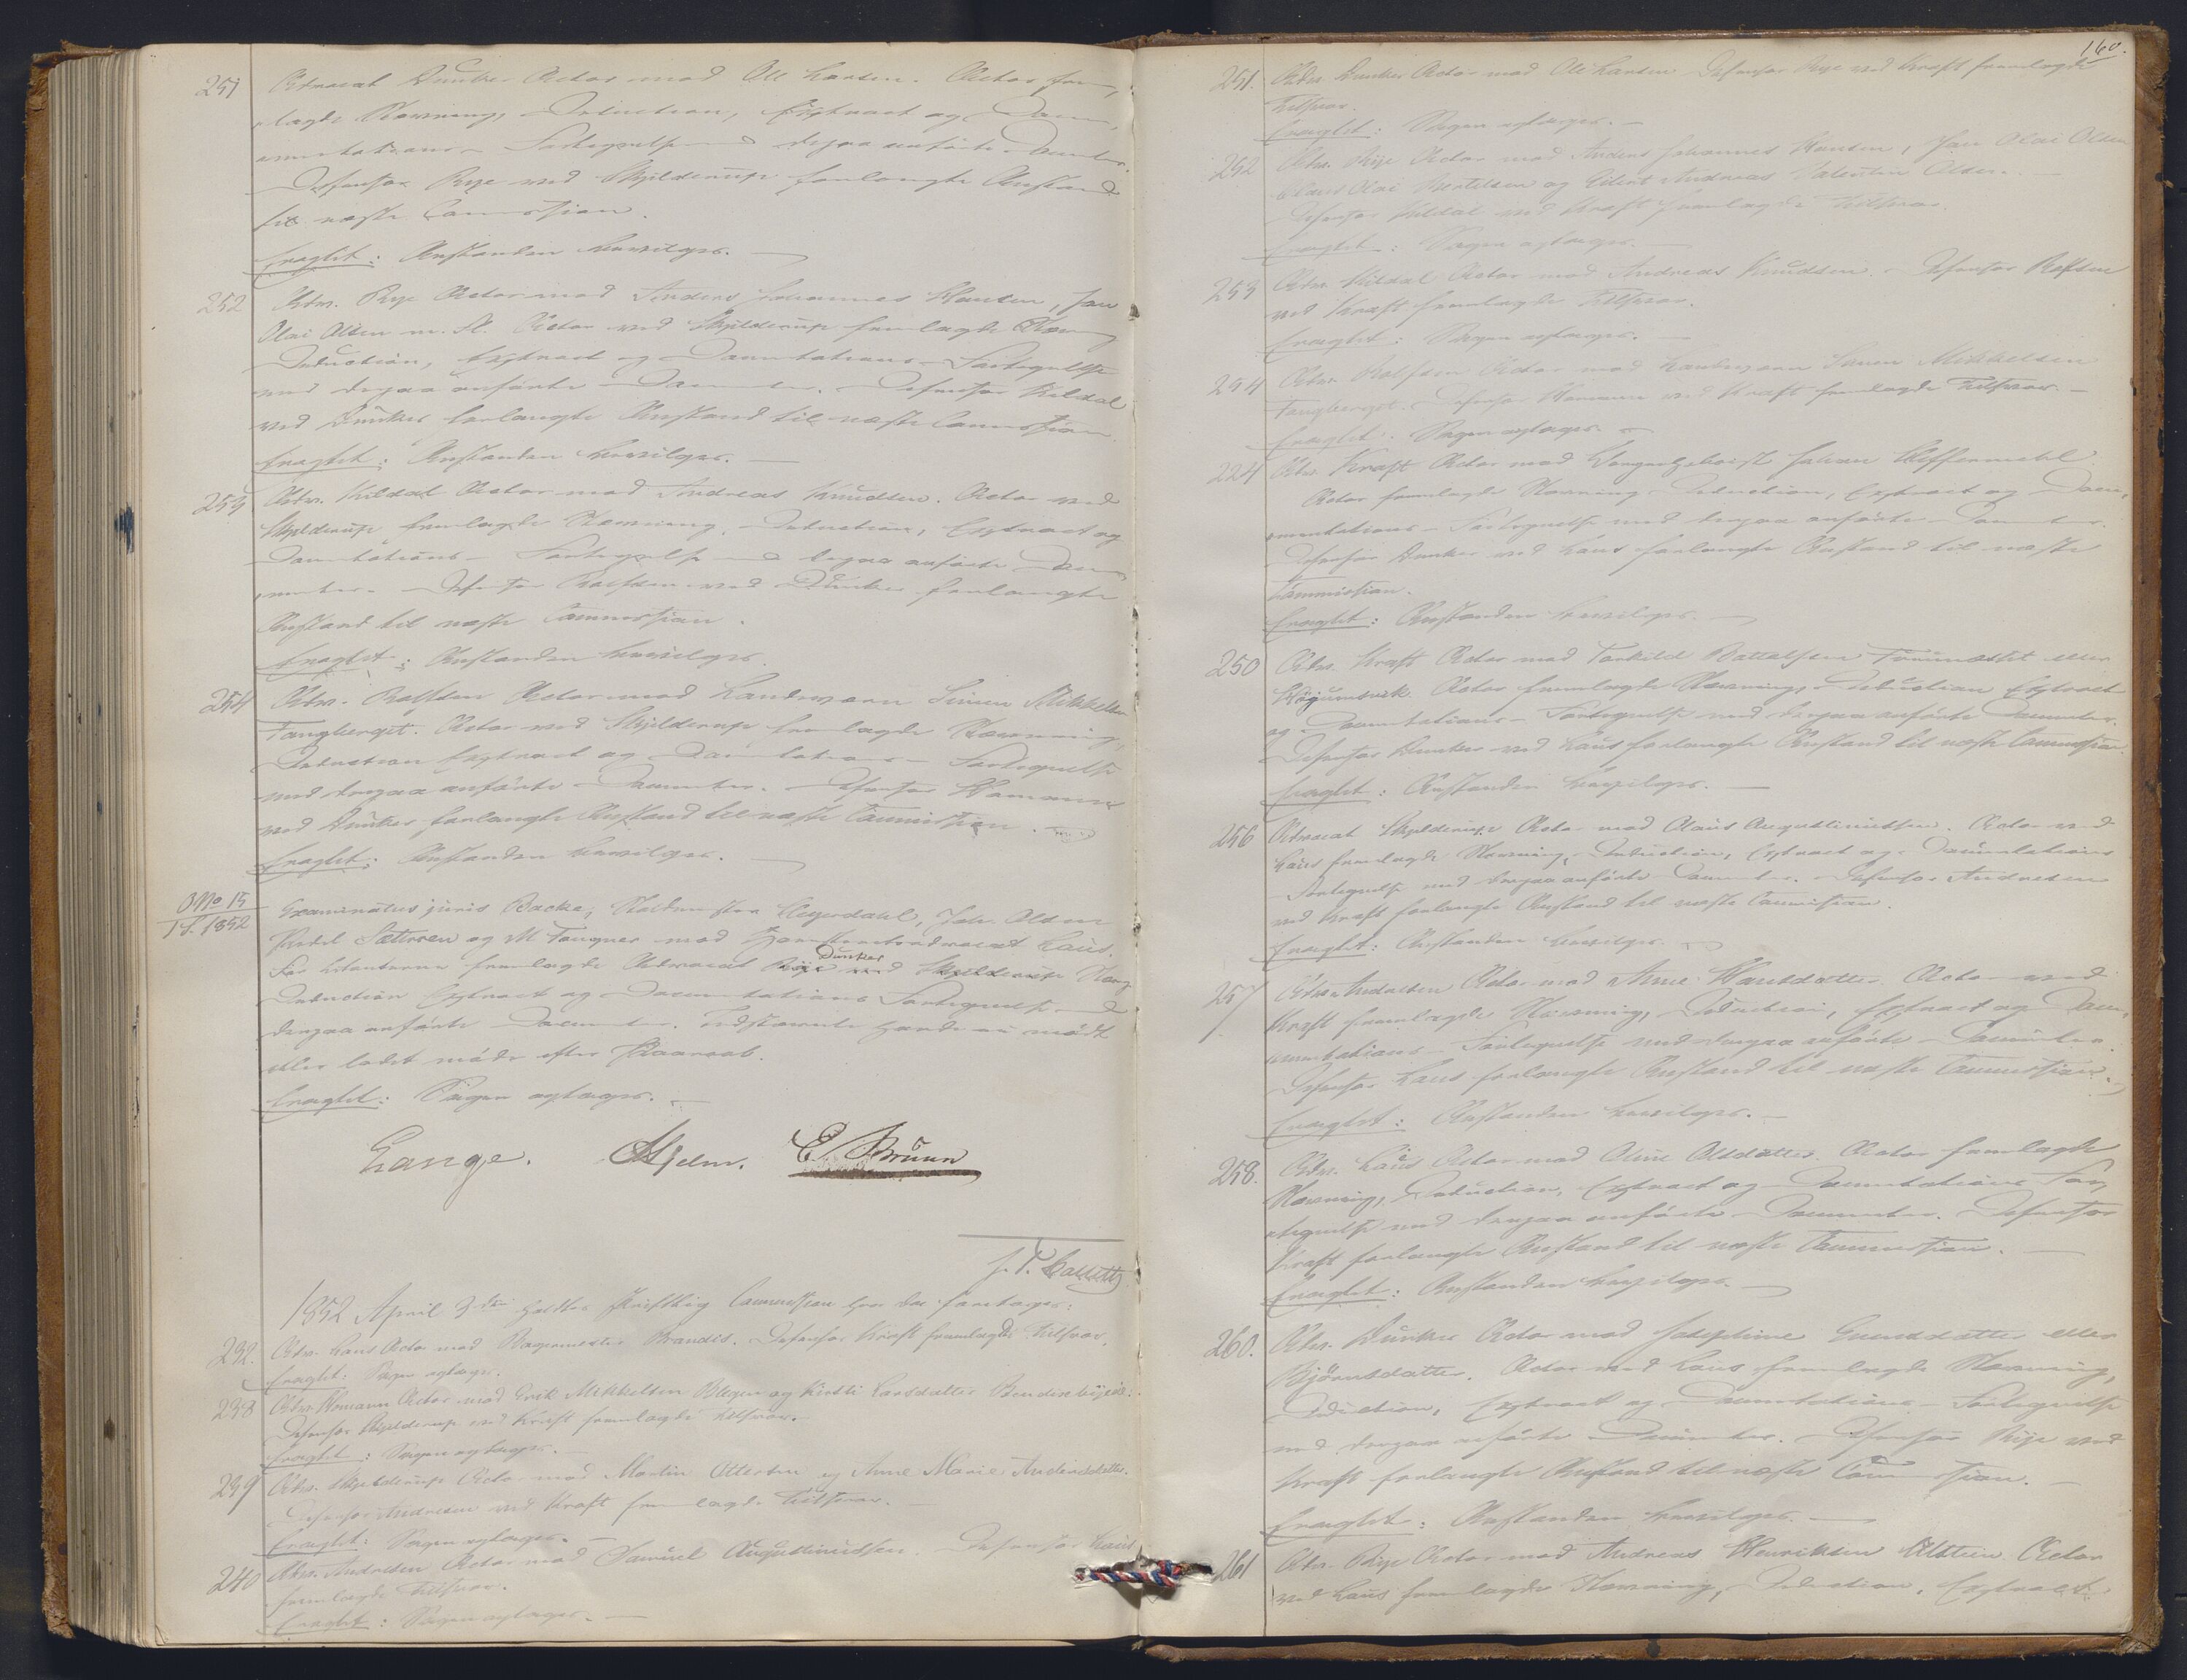 251 Advocat Dunker Actor mod Ole Larsen. Actor frem
lagde Stævning, Deduction, Extract og Docu
mentations-Fortegnelse med derpaa anførte Documenter.
Defensor Rye ved Skjelderup forlangte Anstand
til næste Commission.
Eragtet: Anstanden bevilges.
252 Adv. Rye Actor mod Anders Johannes Hansen, Jan
Olai Olsen m. Fl. Actor ved Skjelderup fremlagde Stævning
Deduction, Extract og Documentations-Fortegnelse
med derpaa anførte Documenter. Defensor Kildal
ved Dunker forlangte Anstand til næste Commission.
Eragtet: Anstanden bevilges.
253 Adv. Kildal Actor mod Andreas Knudsen. Actor ved
Skjelderup fremlagde Stævning, Deduction, Extract og
Documentations-Fortegnelse med derpaa anførte Docu
menter. Defensor Rolfsen ved Dunker forlangte
Anstand til næste Commission.
Eragtet: Anstanden bevilges.
254 Adv. Rolfsen Actor mod Landværn Simen Mikkelsen
Tangberget. Actor ved Skjelderup fremlagde Stævning,
Deduction Extract og Documentations-Fortegnelse
med derpaa anførte Documenter. Defensor Homann
ved Dunker forlangte Anstand til næste Commission.
Eragtet: Anstanden bevilges.
No 15
1852 Examinatus juris Backe, Joh. Olsen
Sætrren og M Tangner mod Advocat Laus.
For Citanterne fremlagde Advocat Dunker Stævning
Deduction Extract og Documentations Fortegnelse med
derpaa anførte Documenter. Indstævnte havde ei mødt
eller ladet møde efter Paaraab.
Eragtet: Sagen optages.
Lange. Hjelm. E. Bruun
1852 April 3die holdtes Skriftlig Commission hvor da foretages:
232. Adv. Laus Actor mod Brandis. Defensor Kraft fremlagde Tilsvar.
Eragtet: Sagen optages.
238 Adv. Homann Actor mod Erik Mikkelsen Blegen og Kirsti Larsdatter
Defensor Skjelderup ved Kraft fremlagde Tilsvar.
Eragtet: Sagen optages.
239 Adv. Skjelderup Actor mod Martin Ottersen og Anne Marie Andersdatter.
Defensor Andresen ved Kraft fremlagde Tilsvar.
Eragtet: Sagen optages.
240 Adv. Andresen Actor mod Samuel Augustinussen. Defensor Laus
fremlagde Tilsvar.
Eragtet: Sagen optages.
160.
251. Adv. Dunker Actor mod Ole Larsen Defensor Rye ved Kraft fremlagde
Tilsvar.
Eragtet: Sagen optages.
252 Adv. Rye Actor mod Anders Johannes Hansen, Jan Olai Olsen
Claus Olai Bertelsen og Eilert Andreas Valentin Olsen.
Defensor Kildal ved Kraft fremlagde Tilsvar.
Eragtet: Sagen optages.
253 Adv. Kildal Actor mod Andreas Knudsen. Defensor Rolfsen
ved Kraft fremlagde Tilsvar.
Eragtet: Sagen optages.
254 Adv. Rolfsen Actor mod Landværn Simen Mikkelsen
Tangberget. Defensor Homann ved Kraft fremlagde Tilsvar.
Eragtet: Sagen optages.
224 Adv. Kraft Actor mod Johan Kessermehl
Actor fremlagde Stævning, Deduction, Extract og Docu
mentations-Fortegnelse med derpaa anførte Documenter.
Defensor Dunker ved Laus forlangte Anstand til næste
Commission.
Eragtet: Anstanden bevilges.
250 Adv. Kraft Actor mod Torkild Bottolfsen eller
Actor fremlagde Stævning, Deduction Extract
og Documentations-Fortegnelse med derpaa anførte Documenter.
Defensor Dunker ved Laus forlangte Anstand til næste Commission.
Eragtet: Anstanden bevilges.
256 Advocat Skjelderup Actor mod Olaus Augustinussen. Actor ved
Laus fremlagde Stævning, Deduction, Extract og Documentations
Fortegnelse med derpaa anførte Documenter. Defensor Andresen
ved Kraft forlangte Anstand til næste Commission.
Eragtet: Anstanden bevilges.
257 Adv. Andresen Actor mod Anne Hansdatter. Actor ved
Kraft fremlagde Stævning, Deduction, Extract og Docu
mentations-Fortegnelse med derpaa anførte Documenter.
Defensor Laus forlangte Anstand til næste Commission.
Eragtet: Anstanden bevilges.
258. Adv. Laus Actor mod Oline Olsdatter. Actor fremlagde
Stævning, Deduction, Extract og Documentations For
tegnelse med derpaa anførte Documenter. Defensor
Kraft forlangte Anstand til næste Commission.
Eragtet: Anstanden bevilges.
260. Adv. Dunker Actor mod Josephine Evensdatter eller
Bjørnsdatter. Actor ved Laus fremlagde Stævning,
Deduction, Extract og Documentations-Fortegnelse
med derpaa anførte Documenter. Defensor Rye ved
Kraft forlangte Anstand til næste Commission.
Eragtet: Anstanden bevilges.
261 Adv. Rye Actor mod Andreas Henriksen Altsteen Actor
ved Laus fremlagde Stævning, Deduction, Extract